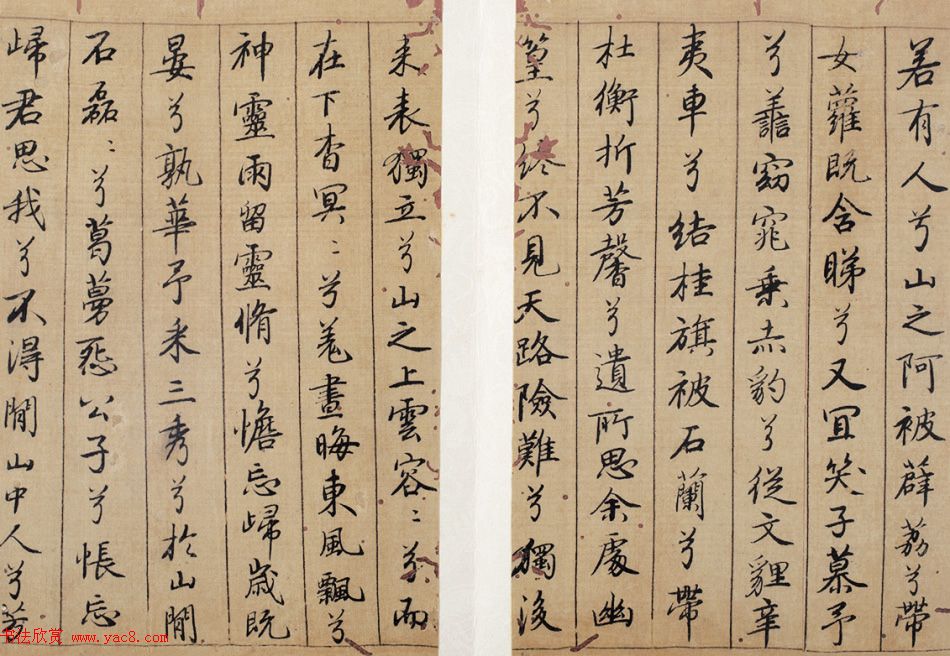 若有人兮山之阿被薜荔兮帶
女蘿既含睇兮又宜笑子慕予
兮譱窈窕乗赤豹兮從文貍辛
夷車兮結桂旗被石蘭兮帶
杜衡折芳馨兮遺所思余處幽
篁兮終不見天路險難兮獨後
来表獨立兮山之上雲容〻兮而
在下杳冥〻兮羌晝晦東風飄兮
神靈雨留靈脩兮憺忘歸歲既
晏兮孰華予采三秀兮於山間
石磊〻兮葛蔓怨公子兮悵忘
歸君思我兮不得閒山中人兮芳
书法欣赏 www.yac8.com